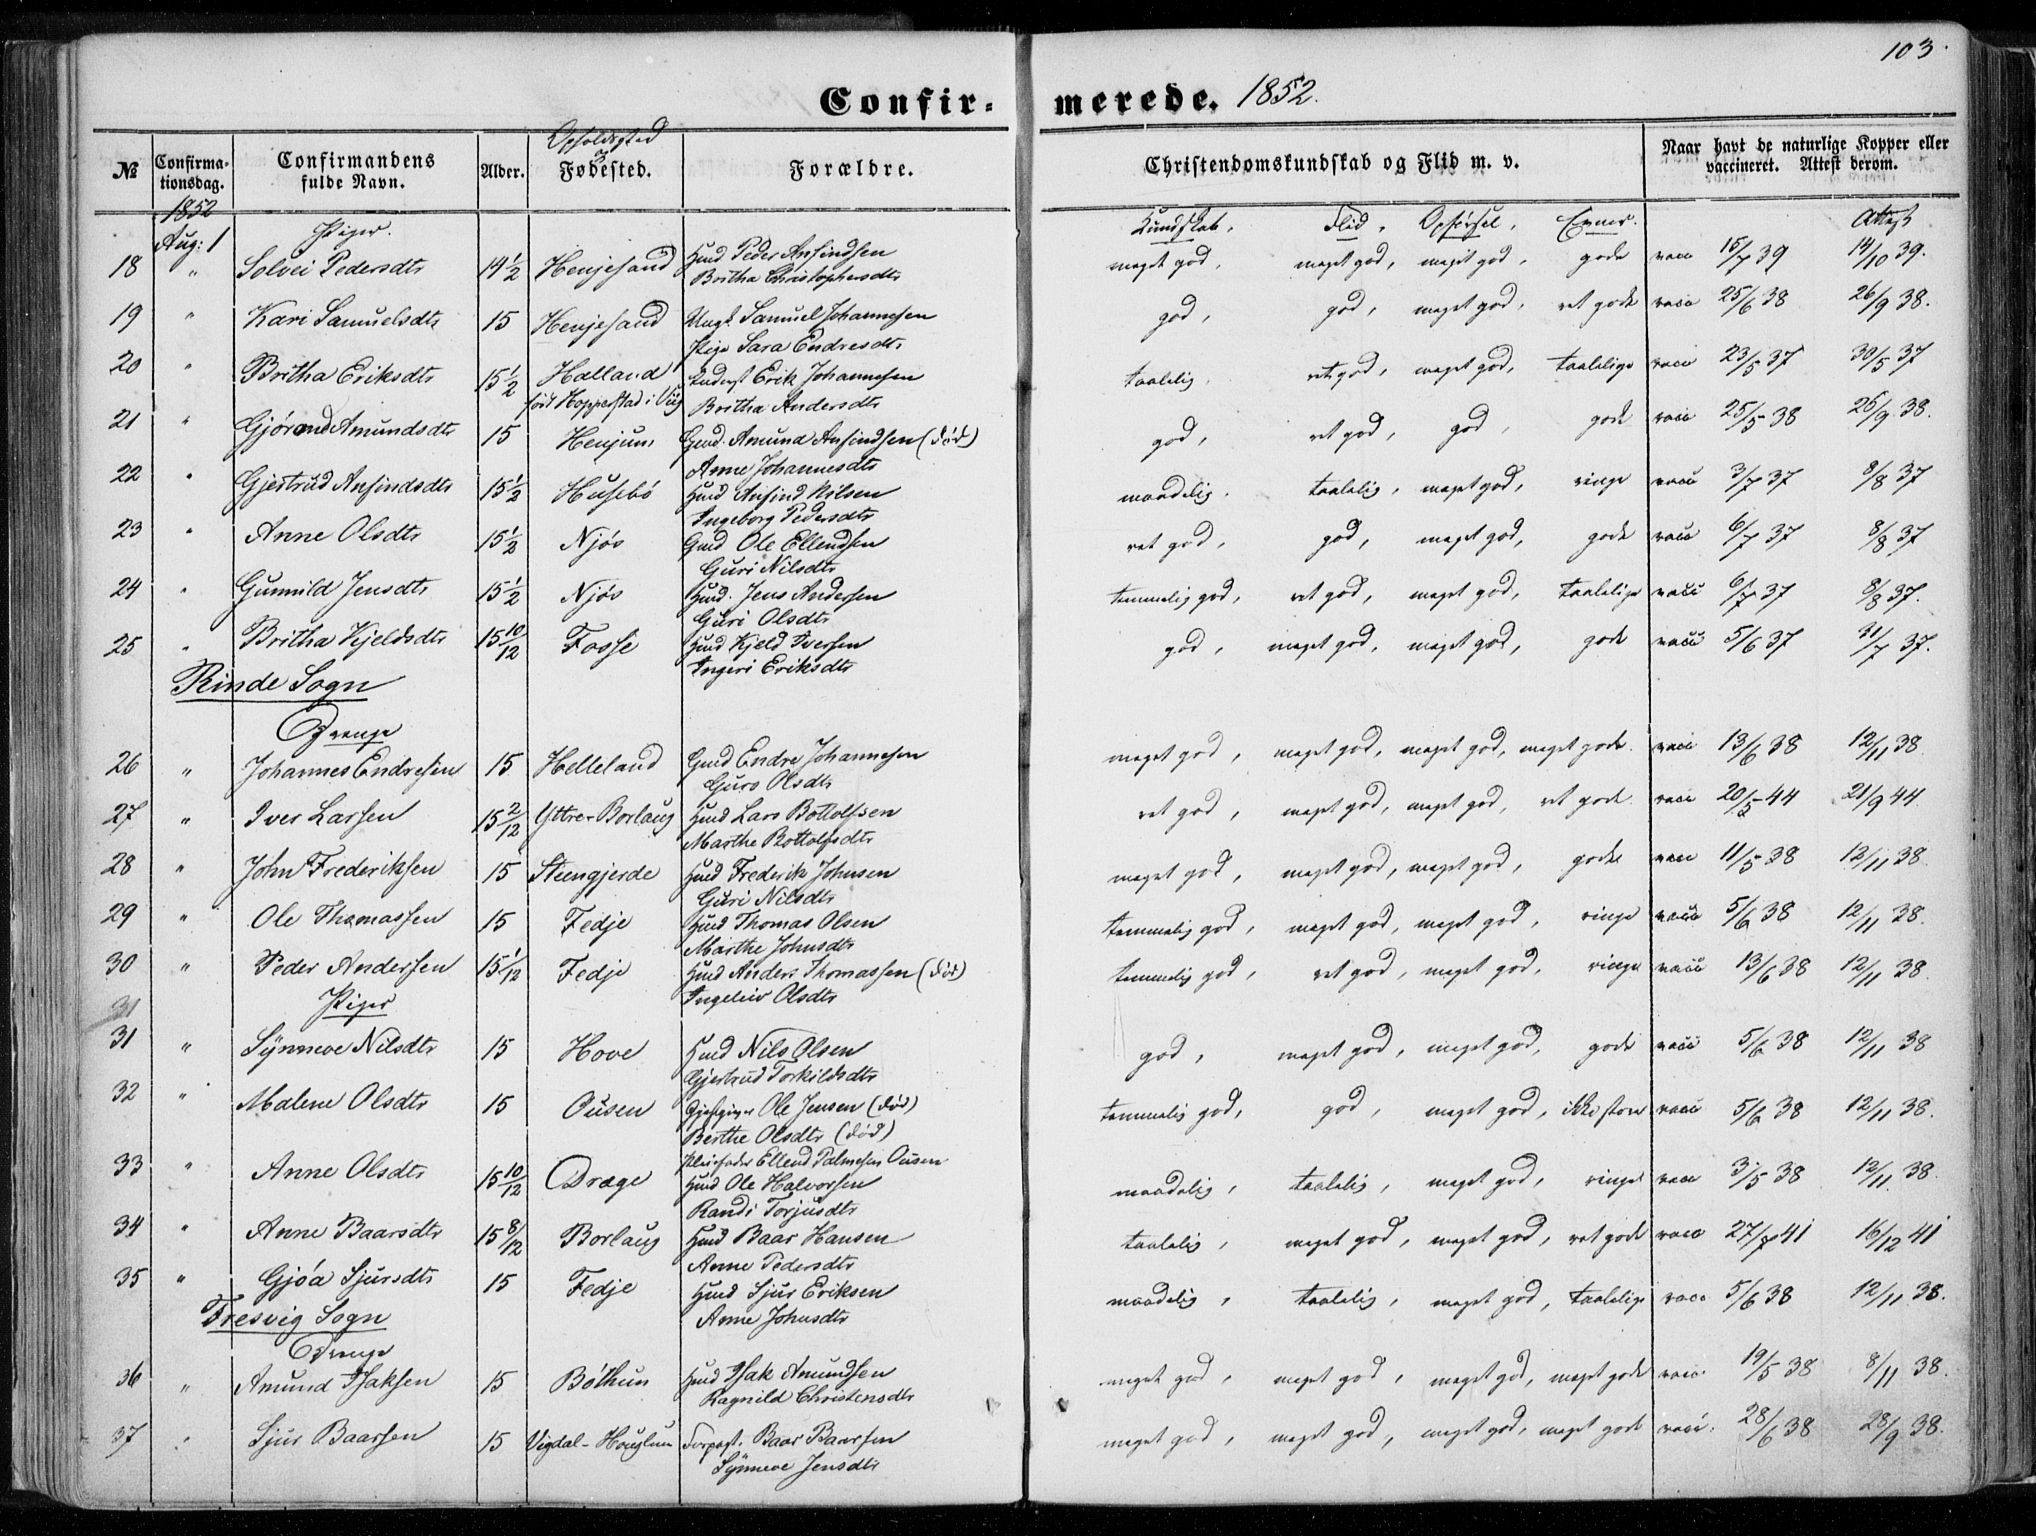 103.
Confirmerede. 1852.
№ Confirmationsdag. Confirmandens fulde Navn. Alder. Opholdssted Fødested. Forældre. Christendomskundskab og Flid m. v. Naar havt de naturlige Kopper eller vaccineret. Attest derom.
1852
Aug: 1 Piger. Kundskab, Flid, Opførsel, Evner. Attest
18 " Solvei Pedersdtr 14½ Henjesand Huusmd Peder Ansindsen meget god, meget god, meget god, gode vacc 15/7 39 14/10 39.
Britha Christophersdtr
19 " Kari Samuelsdtr 15 Henjesand Ungk. Samuel Johannesen god, god, meget god, ret gode vacc 25/6 38 26/9 38.
Pige Sara Endresdtr
20 " Britha Eriksdtr 15½ Halland Erik Johannesen taalelig, ret god, meget god, taalelige vacc 23/5 37 30/5 37
født Hopperstad i Viig Britha Andersdtr
21 " Gjørond Amundsdtr 15 Henjum Gmd. Amund Ansindsen (død) god, ret god, god, gode vacc 25/5 38 26/9 38.
Anne Johannesdtr
22 " Gjertrud Ansindsdtr 15½ Husebø Hmd Ansind Nilsen maadelig, taalelig, meget god, ringe vacc 3/7 37 8/8 37
Ingeborg Pedersdtr
23 " Anne Olsdtr 15½ Njøs Gmd Ole Ellendsen ret god, god, meget god, gode vacc 6/7 37 8/8 37
Guri Nilsdtr
24 " Gunnild Jensdtr 15½ Njøs Hmd. Jens Andersen temmelig god, ret god, meget god, taalelige vacc 6/7 37 8/8 37.
Guri Olsdtr
25 " Britha Kjeldsdtr 15 10/12 Fosse Hmd Kjeld Iversen god, meget god, meget god, gode vacc 5/6 37 31/7 37.
Ingeri Eriksdtr
Rinde Sogn
Drenge
26 " Johannes Endresen 15 Helleland Gmd Endre Johannesen meget god, meget god, meget god, meget gode. vacc 13/6 38 12/11 38
Guro Olsdtr
27 " Iver Larsen 15 2/12 Yttre-Borlaug Hmd Lars Bottolfsen ret god, meget god, meget god, ret gode. vacc 20/5 44 21/9 44
Marthe Bottolfsdtr
28 " John Frederiksen 15 Steengjerde Hmd Frederik Johnsen meget god, meget god, meget god, gode vacc 11/5 38 12/11 38.
Guri Nilsdtr
29 " Ole Thomassen 15 Fedje Hmd Thomas Olsen temmelig god, meget god, meget god, ringe vacc 5/6 38 12/11 38.
Marthe Johnsdtr
30 " Peder Andersen 15 1/12 Fedje Hmd Anders Thomassen (død) temmelig god, ret god, meget god, ringe vacc 13/6 38 12/11 38.
Ingeleiv Olsdtr
31 Piger
31 " Synneve Nilsdtr 15 Hove Hmd Nils Olsen god, meget god, meget god, gode vacc 5/6 38 12/11 38
Gjertrud Torkildsdtr
32 " Malene Olsdtr 15 Ousen Gjæstgiver Ole Jensen (død) temmelig god, god, meget god, ikke store vacc 5/6 38 12/11 38.
Berthe Olsdtr (død)
Pleiefader Ellend Palmesen Ousen
33 " Anne Olsdtr 15 10/12 Dræge Hmd Ole Halvorsen maadelig, taalelig, meget god, ringe vacc 3/5 38 12/11 38.
Randi Torjusdtr
34 " Anne Baarsdtr 15 8/12 Borlaug Hmd Baar Hansen taalelig, meget god, meget god, ret gode vacc 27/7 41 16/12 41
Anne Pedersdtr
35 " Gjøa Sjursdtr 15 Fedje Hmd Sjur Eriksen maadelig, taalelig, meget god, taalelige vacc 5/6 38 12/11 38.
Anne Johnsdtr
Fresvig Sogn
Drenge
36 " Amund Isaksen 15 Bøthun Hmd Isak Amundsen meget god, meget god, meget god, meget gode vacc. 19/5 38 8/11 38.
Ragnild Christensdtr
37 " Sjur Baarsen 15 Vigdal-Houglum Forpagt. Baar Baarsen meget god, meget god, meget god, meget gode vacc. 28/6 38 28/9 38.
Synneve Jensdtr